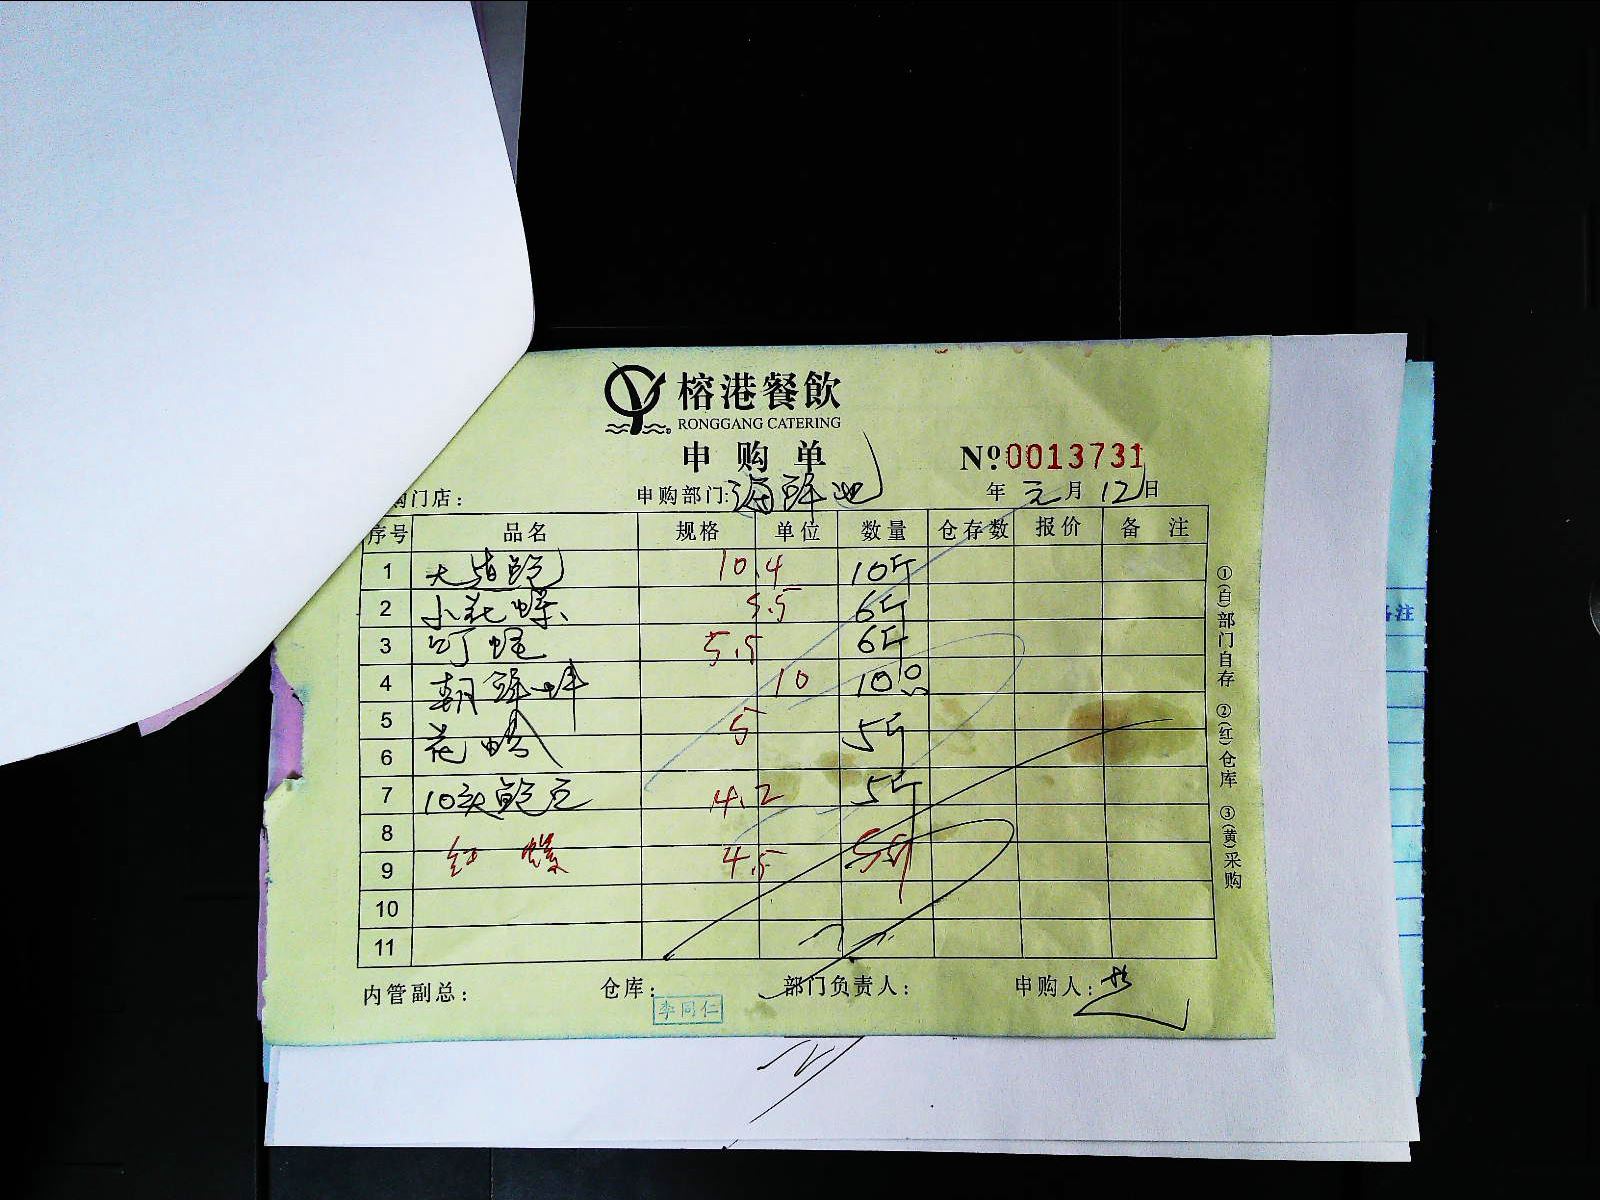 榕港餐飲
RONGGANG CATERING
申购单 №0013731
购门店： 申购部门：海鲜池 年元月12日
序号 品名 规格 单位 数量 仓存数 报价 备注
1 10.4 10斤
2 小花螺 5.5 6斤
3 5.5 6斤
4 10
5
6 花蛤 5 5斤
7 10头鲍 4.2 5斤
8
9 红螺 4.5 5斤
10
11
内管副总： 仓库： 部门负责人： 申购人：
李同仁
①(白)部门自存 ②(红)仓库 ③(黄)采购
备注